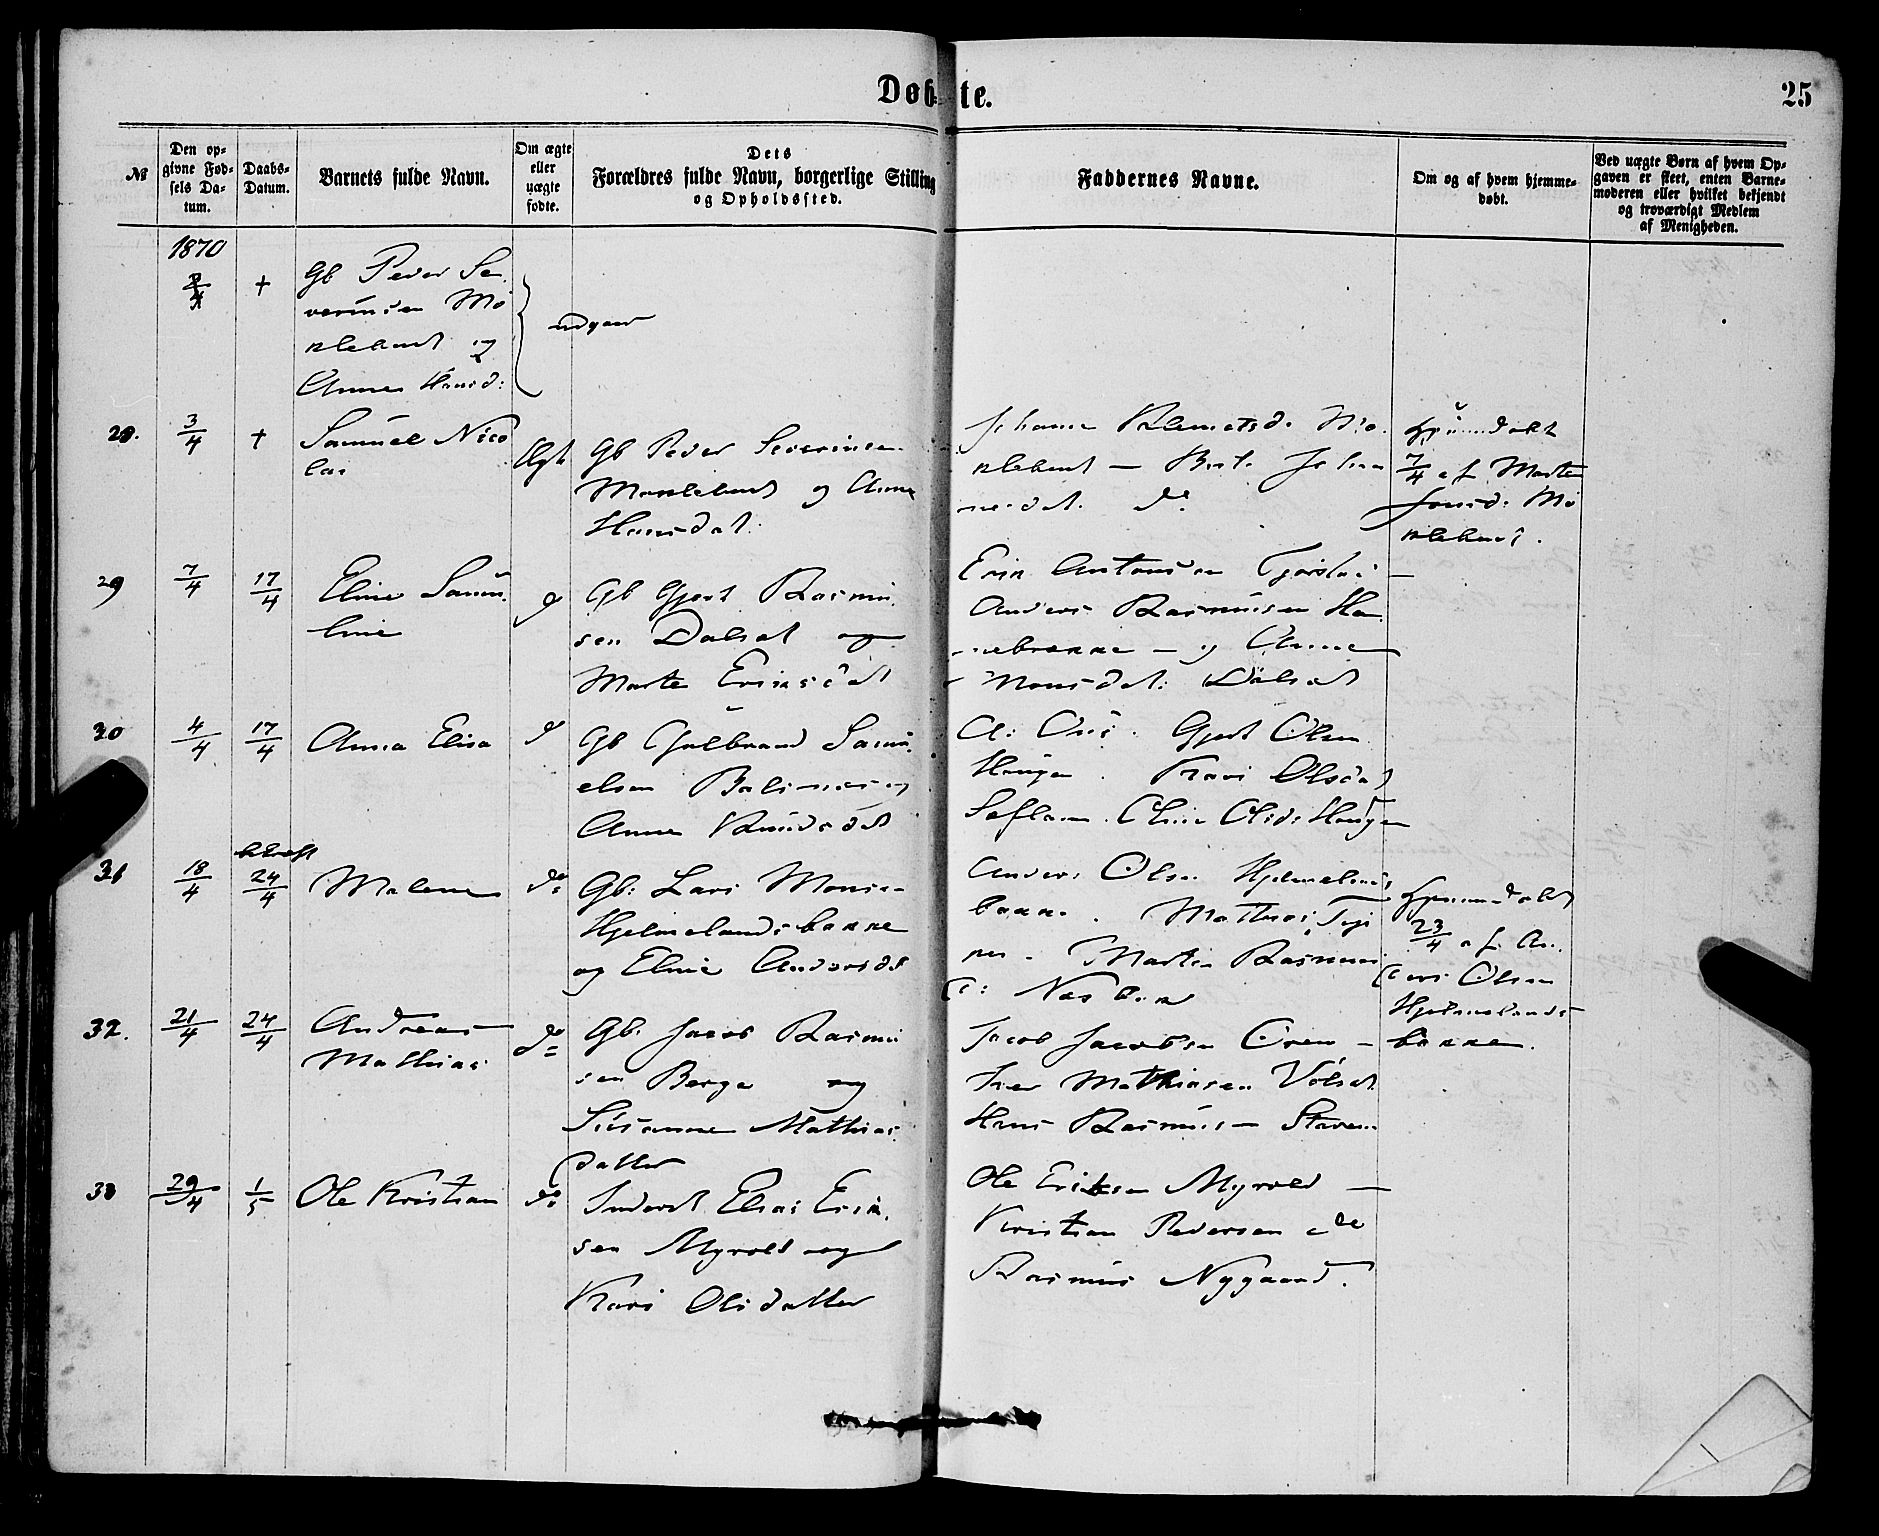 Døb-
te.
25
№
Den op-
givne Fød-
sels Da-
tum.
Daabs-
Datum.
Barnets fulde Navn.
Om ægte
eller
uægte
fødte.
Dets
Forældres fulde Navn, borgerlige Stilling
og Opholdssted.
Faddernes Navne.
Om og af hvem hjemme-
døbt.
Ved uægte Børn af hvem Op-
gaven er skeet, enten Barne-
moderen eller hvilket bekjendt
og troværdigt Medlem
af Menigheden.
1870
+
Gb Peder Se
verinsen Mø
klebust og
Anne Hansd:
udgaar
28.
3/4
+
Samuel Nico
lai
Ægt
Gb Peder Severinsen
Møklebust og Anne
Hansdat:
Klemetsd. Mø
klebust —
do
Hjemmedøbt
7/4 af Marte
Jonsd: Mø
klebust.
29
7/4
17/4
Eline Samu
line
d
Gb Gjert Rasmu
sen Dalset og
Marte Eriksdat
Erik Antonsen
Anders Rasmusen Ha
nebrekke — og Anne
Monsdat: Dalset
30
4/4
17/4
Anna Elisa
d
Gb Gulbrand Samu
elsen
Anne Knudsdat
Gjert Olsen
Haugen. Kari Olsdat
Oline Olsd: Haugen
31
18/4
24/4
Malene
do:
Gb: Lars Monsen
Hjelmelandsbakke
og Eline Andersdt
Anders Olsen Hjelmelands
bakke. Mathias
Marte Rasmus
d:
Hjemmedøbt
23/4 af An
ders Olsen
Hjelmelands
bakken.
32.
21/4
24/4
Andreas
Mathias
do
Gb: Jacob Rasmu
sen Berge og
Susanne Mathias
datter
Jacob Jacobsen Oren —
Iver Mathiasen Volset
Hans Rasmusen
33
29/4
1/5
Ole Kristian
do:
Inderst Elias Erik
sen Myrold og
Kari Olsdatter
Ole Eriksen Myrold —
Kristian Pedersen do
Rasmus Nygaard.